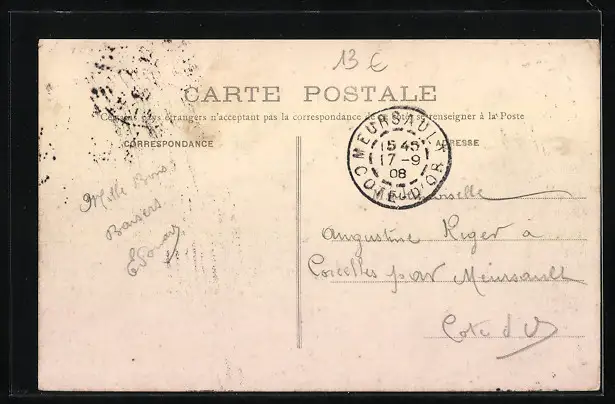 13 €
CARTE POSTALE
Certains pays étrangers n'acceptant pas la correspondance de ce côté, se renseigner à la Poste
CORRESPONDANCE
ADRESSE
MEURSAULT
15 45
17-9
08
COTE-D'OR
Mademoiselle
Angustine Riger à
Corcelles par Meursault
Cote d'Or
Mille Bons
Baisers